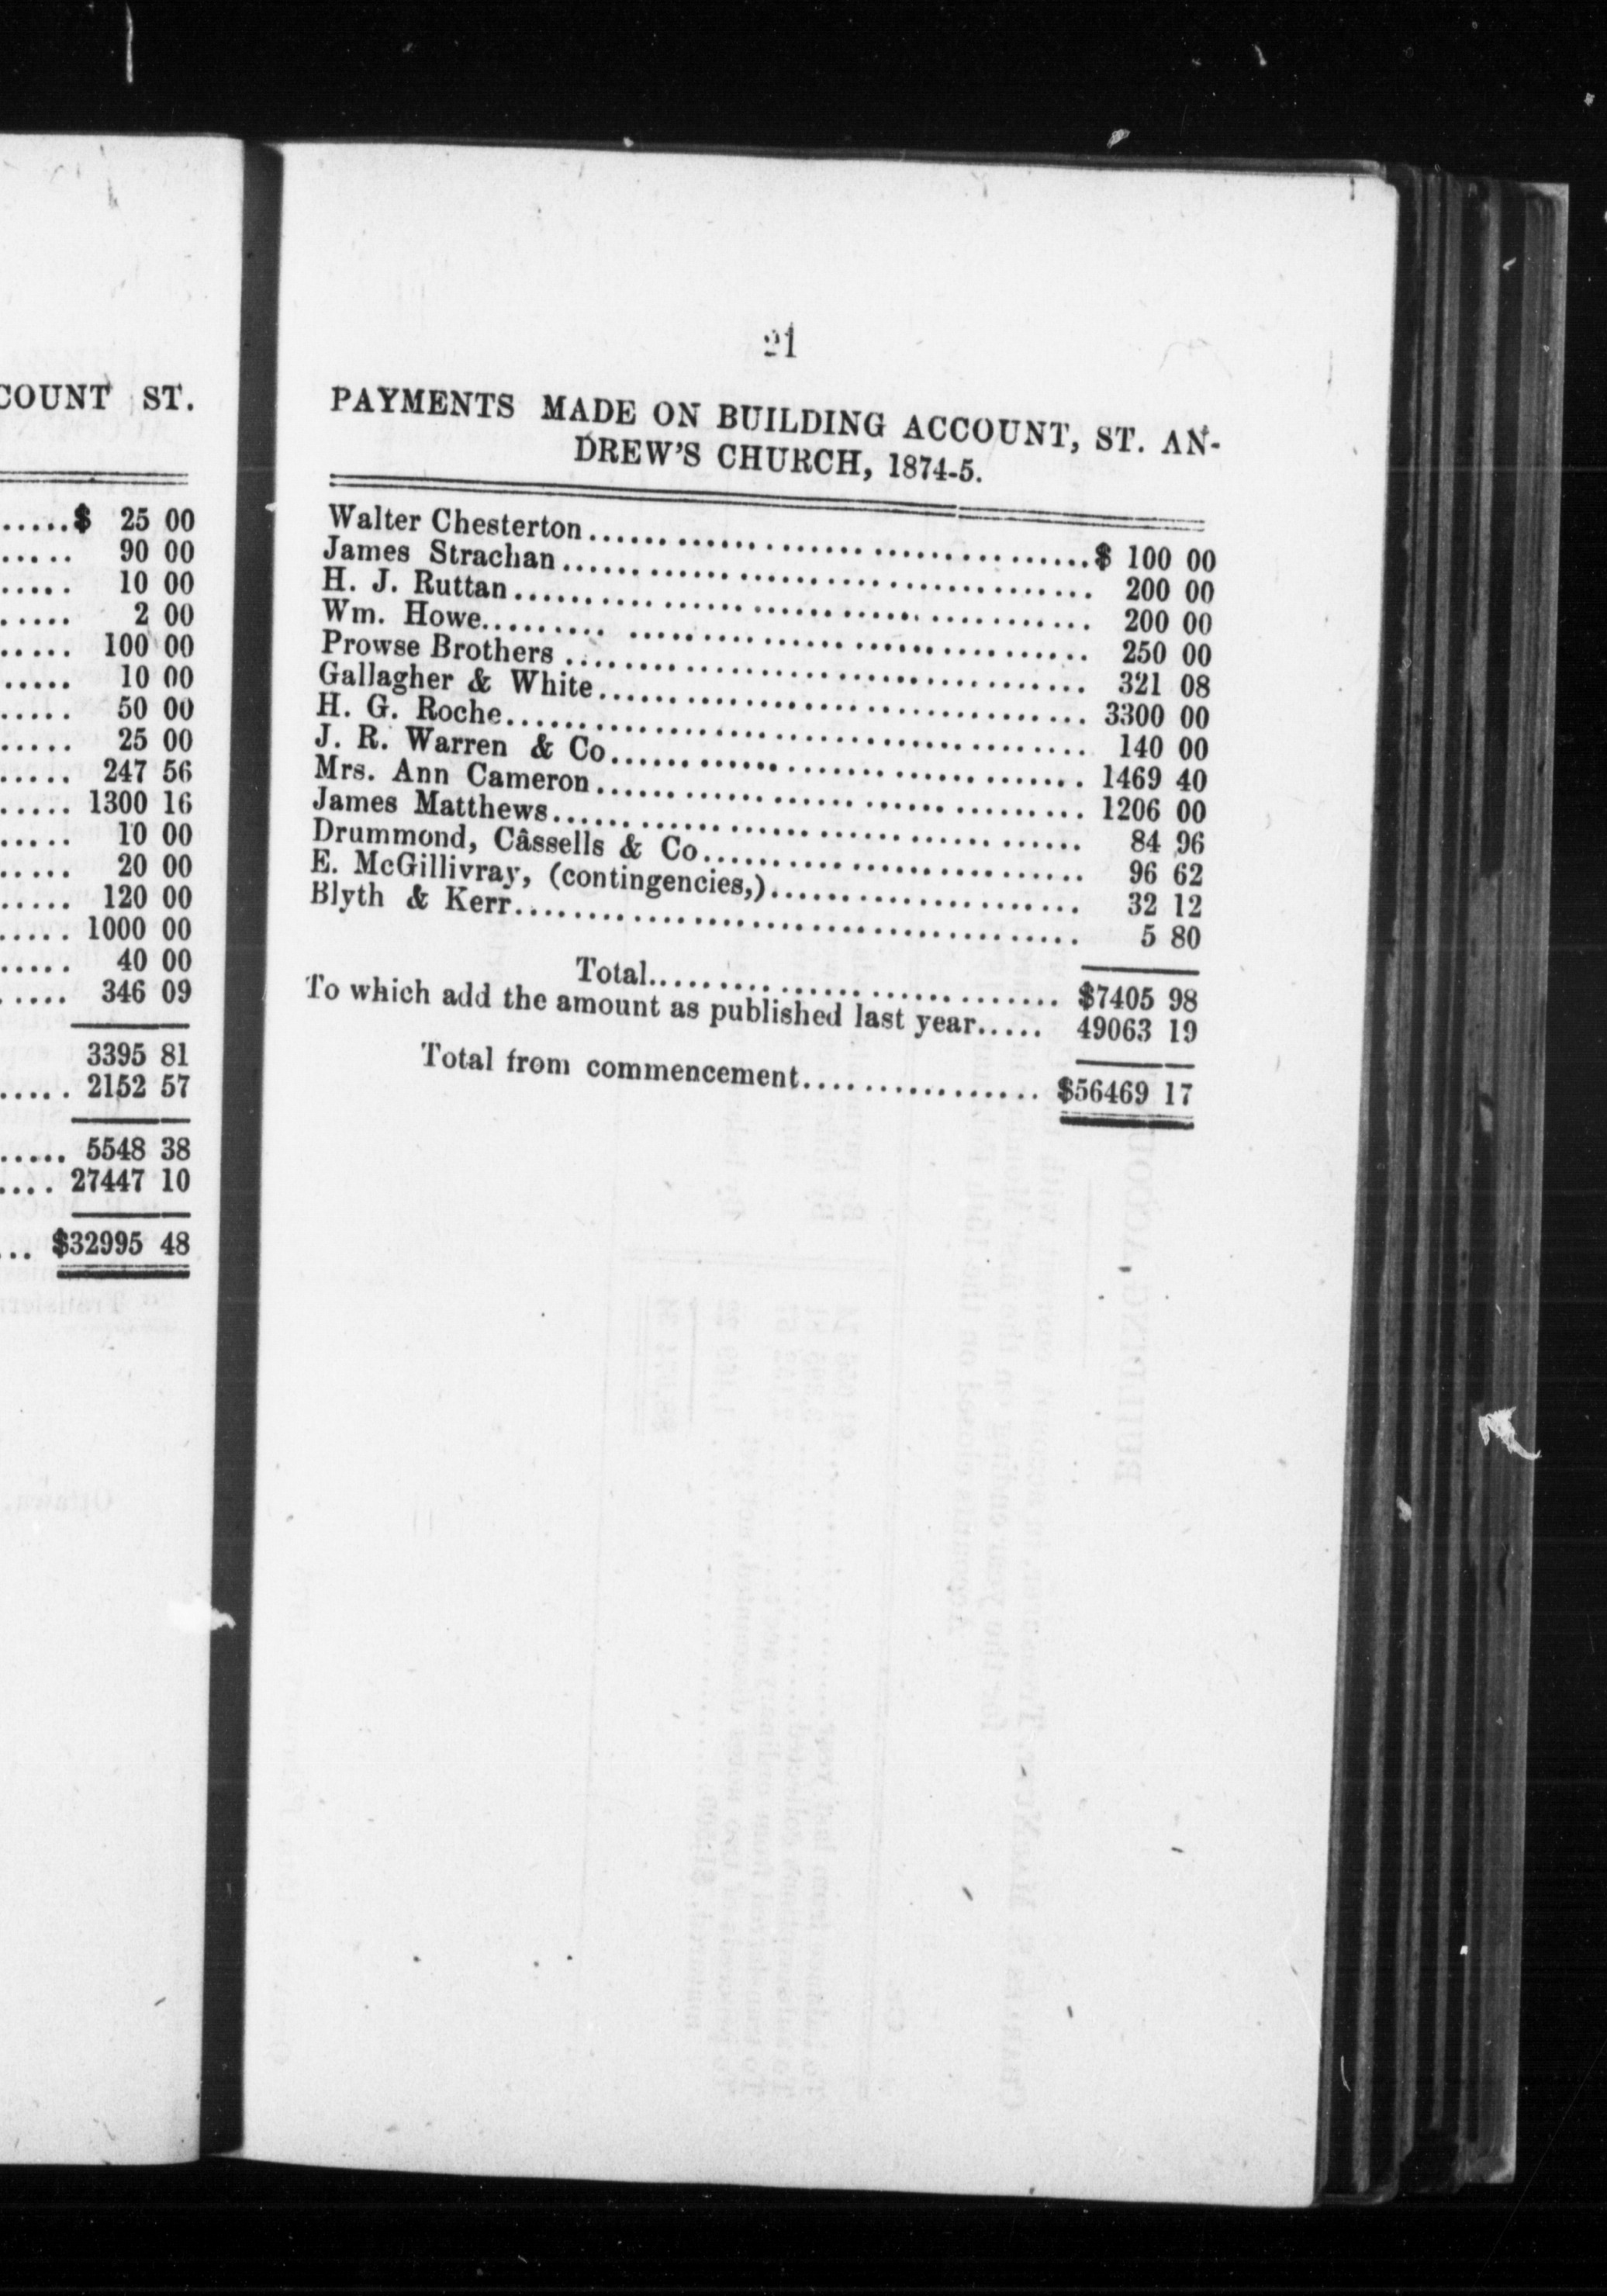 COUNT ST.
.....$ 25 00
..... 90 00
..... 10 00
..... 2 00
..... 100 00
..... 10 00
..... 50 00
..... 25 00
..... 247 56
..... 1300 16
..... 10 00
..... 20 00
..... 120 00
..... 1000 00
..... 40 00
..... 346 09
3395 81
..... 2152 57
..... 5548 38
.... 27447 10
... $32995 48
21
PAYMENTS MADE ON BUILDING ACCOUNT, ST. AN-
DREW'S CHURCH, 1874-5.
Walter Chesterton........................................$ 100 00
James Strachan........................................ 200 00
H. J. Ruttan........................................ 200 00
Wm. Howe........................................ 250 00
Prowse Brothers ........................................ 321 08
Gallagher & White........................................ 3300 00
H. G. Roche........................................ 140 00
J. R. Warren & Co........................................ 1469 40
Mrs. Ann Cameron........................................ 1206 00
James Matthews........................................ 84 96
Drummond, Câssells & Co.............................. 96 62
E. McGillivray, (contingencies,)..................... 32 12
Blyth & Kerr........................................ 5 80
Total.............................. $7405 98
To which add the amount as published last year..... 49063 19
Total from commencement................ $56469 17